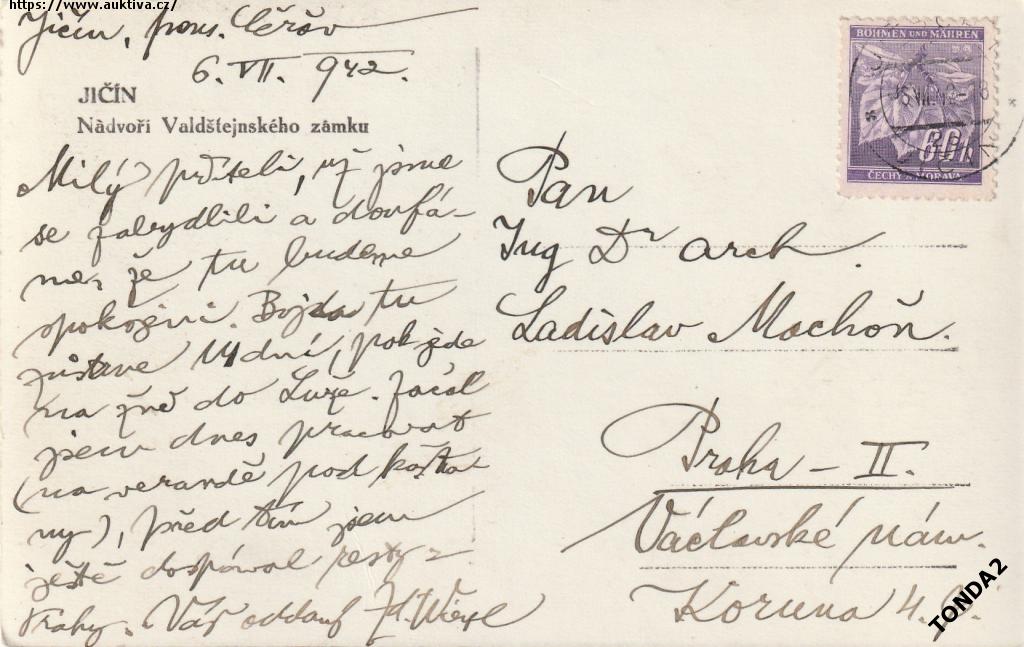 https://www.auktiva.cz/
Jičín, pens. Čěřov
6. VII. 942.
JIČÍN
Nádvoří Valdštejnského zámku
Milý příteli, už jsme
se zabydlili a doufá-
me, že tu budeme
spokojeni. Bojda tu
zůstane 14 dní, pak jede
na žně do Luže. Začal
jsem dnes pracovat
(na verandě pod kašta-
ny), před tím jsem
ještě dospával resty z
Prahy. Váš oddaný Zd. Wirth
BÖHMEN UND MÄHREN
60h
ČECHY A MORAVA
Pan
Ing Dr arch.
Ladislav Machoň.
Praha – II.
Václavské nám.
Koruna 4.
TONDA2